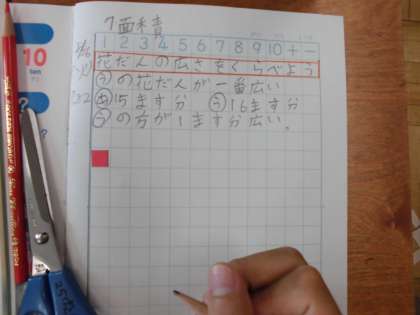 7 面積
1 2 3 4 5 6 7 8 9 10 + -
花だんの広さをくらべよう
うの花だんが一番広い
あ15ます分 う16ます分
うの方が1ます分広い。
10
ten
?